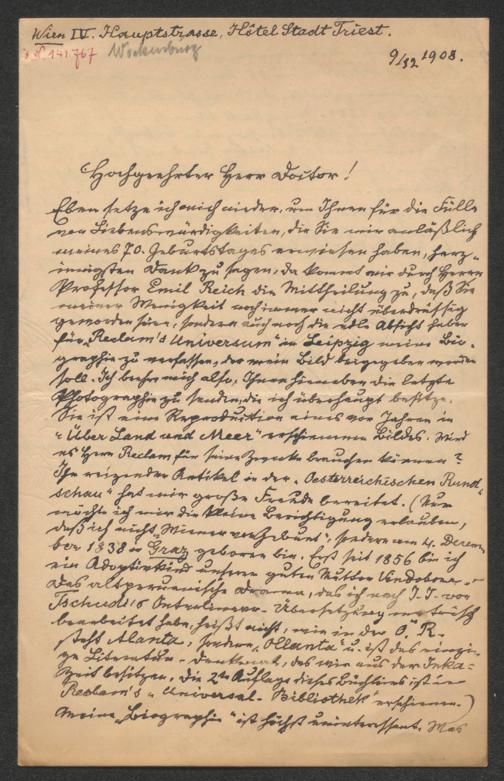 Wien IV. Hauptstrasse, Hôtel Stadt Triest.
141.767
9/12 1908.
Hochgeehrter Herr Doctor!
Eben setze ich mich nieder, um Ihnen für die Fülle
von Liebenswürdigkeiten, die Sie mir anläßlich
meines 70. Geburtstages erwiesen haben, herz-
innigsten Dank zu sagen, da kommt mir durch Herrn
Professor Emil Reich die Mittheilung zu, daß Sie
meiner Wenigkeit noch immer nicht überdrüssig
geworden sind, sondern auch noch die edle Absicht haben
für „Reclam's Universum" in Leipzig meine Bio-
graphie zu verfassen, der mein Bild beigegeben werden
soll. Ich beehre mich also, Ihnen hierneben die letzte
Photographie zu senden, die ich überhaupt besitze.
Sie ist eine Reproduction eines vor Jahren in
„Über Land und Meer" erschienenen Bildes. Wird
es Herr Reclam für seine Zwecke brauchen können?
Ihr reizender Artikel in der „Oesterreichischen Rund-
schau" hat mir große Freude bereitet. (Nur
möchte ich mir die kleine Berichtigung erlauben,
daß ich nicht „Wiener von Geburt", sondern am 4. Decem-
ber 1838 in Graz geboren bin. Erst seit 1856 bin ich
ein Adoptivkind unserer guten Mutter Vindobona.
Das altperuanische Drama, das ich nach J. J. von
Tschudi's Übersetzung metrisch
bearbeitet habe, heißt nicht, wie in der Ö. R.
steht Alanta, sondern „Ollanta" u. ist das einzi-
ge Literatur-Denkmal, das wir aus der Inka-
Zeit besitzen. Die 2te Auflage dieses Büchleins ist in
Reclam's „Universal-Bibliothek" erschienen.)
Meine „Biographie" ist höchst uninteressant. Was